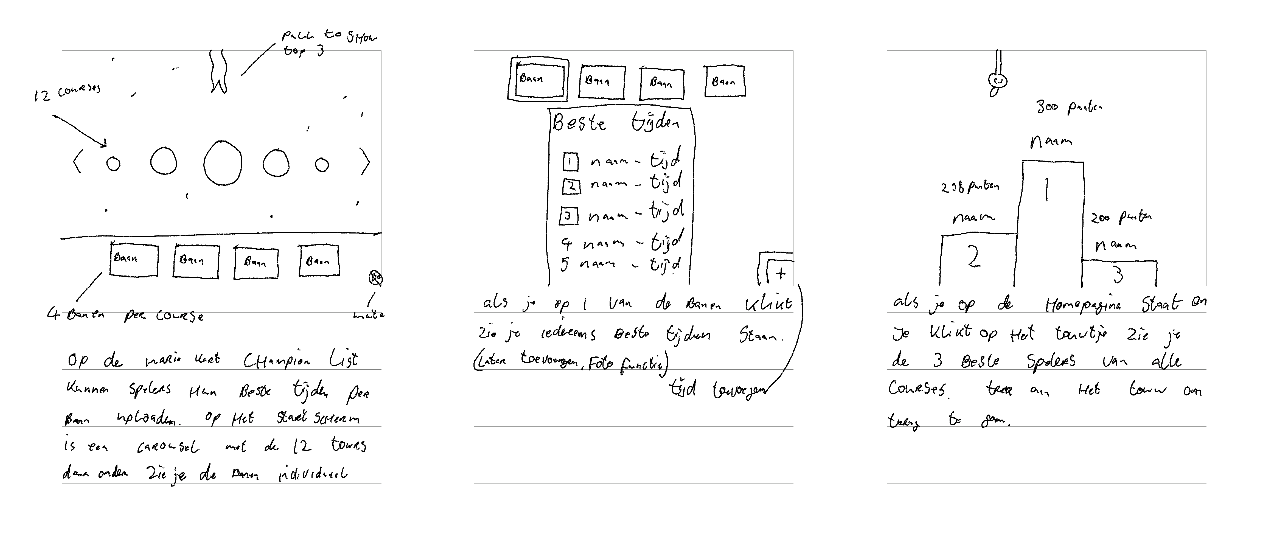 pull to show
top 3
12 courses
Baan Baan Baan Baan
4 Banen per course
mute
op de mario kart Champion list
kunnen spelers hun Beste tijden per
Baan uploaden. op Het Start scherm
is een carousel met de 12 tours
daar onder zie je de Banen individueel
Baan Baan Baan Baan
Beste tijden
1 naam - tijd
2 naam - tijd
3 naam - tijd
4 naam - tijd
5 naam - tijd
+
als je op 1 van de Banen klikt
zie je iedereens Beste tijden staan.
(Later toevoegen, Foto functie)
tijd toevoegen
300 punten
naam
1
298 punten
naam
2
200 punten
naam
3
als je op de Homepagina Staat en
je klikt op Het touwtje zie je
de 3 Beste Spelers van alle
Courses. aan Het touw om
terug te gaan.